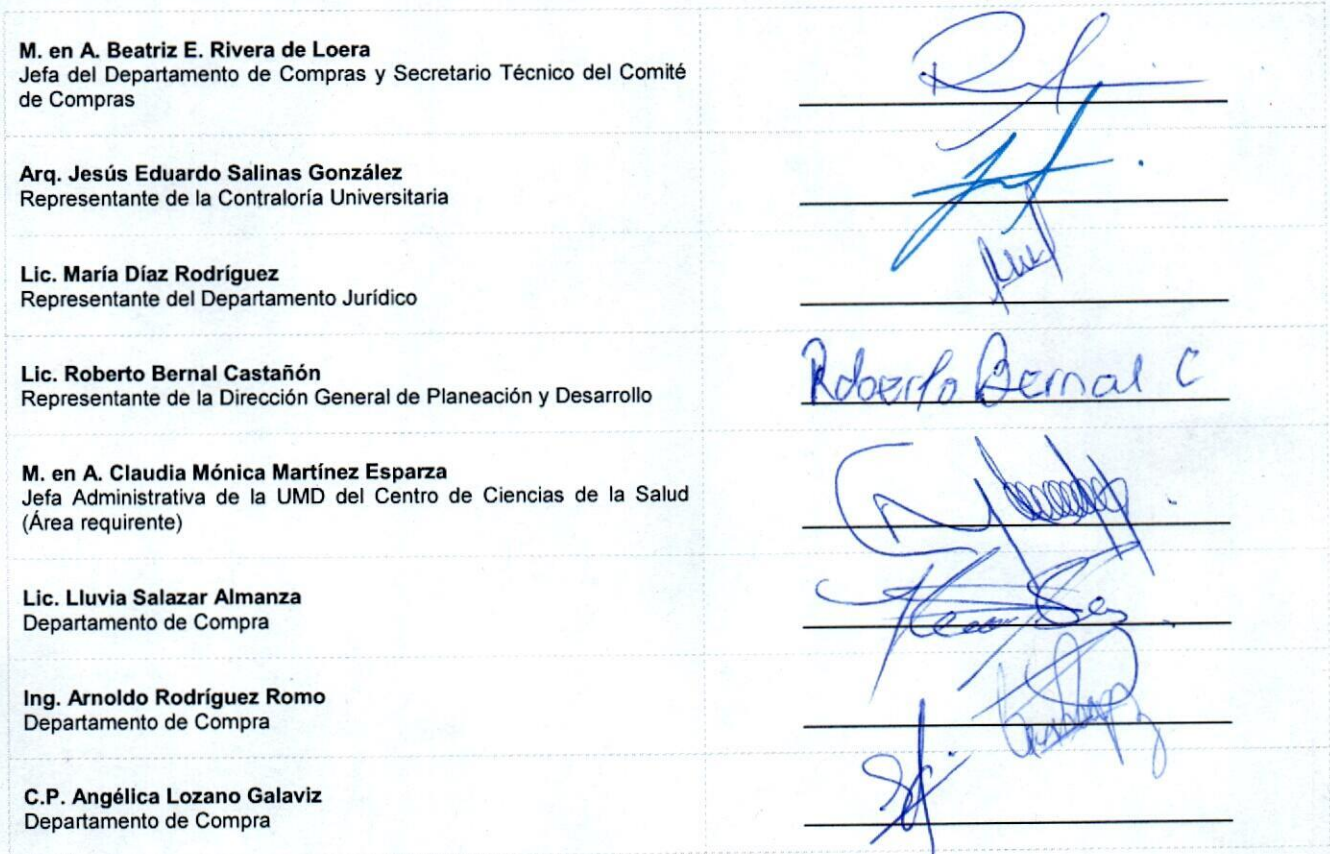 M. en A. Beatriz E. Rivera de Loera
Jefa del Departamento de Compras y Secretario Técnico del Comité
de Compras
Arq. Jesús Eduardo Salinas González
Representante de la Contraloría Universitaria
Lic. María Díaz Rodríguez
Representante del Departamento Jurídico
Lic. Roberto Bernal Castañón
Representante de la Dirección General de Planeación y Desarrollo
Roberto Bernal C
M. en A. Claudia Mónica Martínez Esparza
Jefa Administrativa de la UMD del Centro de Ciencias de la Salud
(Área requirente)
Lic. Lluvia Salazar Almanza
Departamento de Compra
Ing. Arnoldo Rodríguez Romo
Departamento de Compra
C.P. Angélica Lozano Galaviz
Departamento de Compra